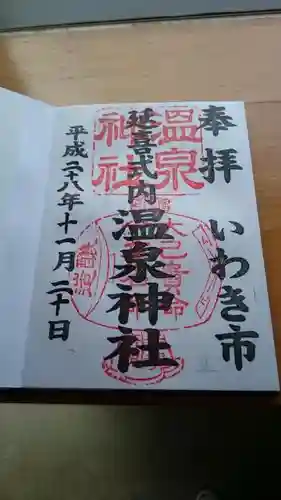 奉拝 いわき市
延喜式内 温泉神社
平成二十八年十一月二十日
温泉
神社
大己貴命